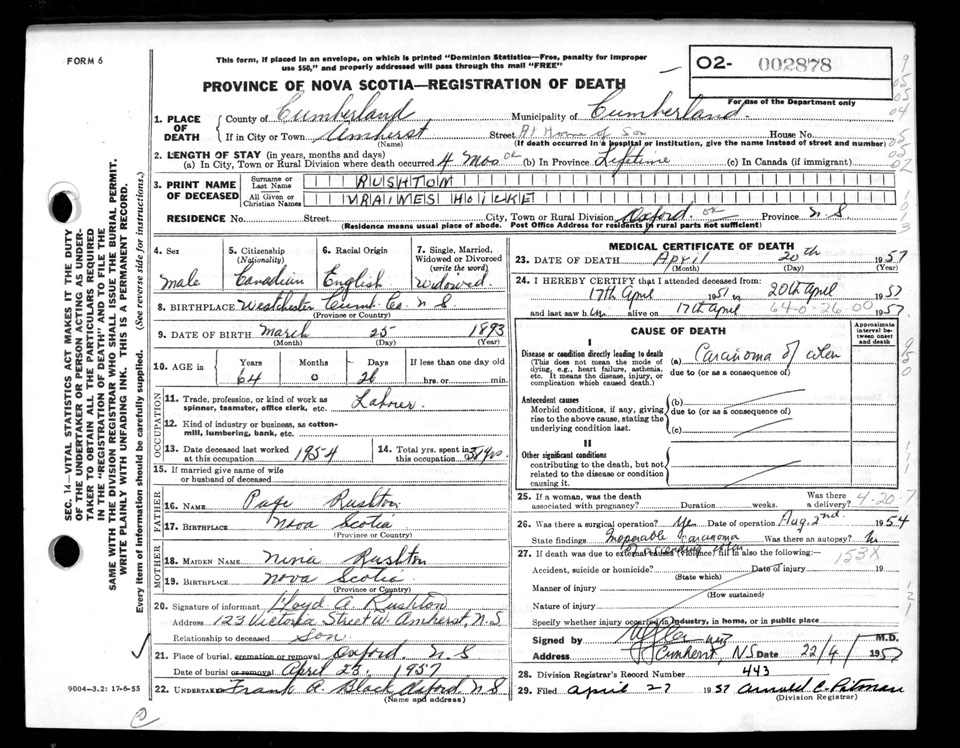 FORM 6
This form, if placed in an envelope, on which is printed "Dominion Statistics—Free, penalty for improper
use $50," and properly addressed will pass through the mail "FREE"
O2- 002878
For use of the Department only
PROVINCE OF NOVA SCOTIA—REGISTRATION OF DEATH
1. PLACE OF DEATH
County of Cumberland Municipality of Cumberland
If in City or Town Amherst Street At Home of Son House No.
(Name) (If death occurred in a hospital or institution, give the name instead of street and number)
2. LENGTH OF STAY (in years, months and days)
(a) In City, Town or Rural Division where death occurred 4 Mos. (b) In Province Lifetime (c) In Canada (if immigrant)
3. PRINT NAME OF DECEASED
Surname or Last Name RUSHTOM
All Given or Christian Names
RESIDENCE No. Street City, Town or Rural Division Oxford. Province N.S
(Residence means usual place of abode. Post Office Address for residents in rural parts not sufficient)
4. Sex
male
5. Citizenship (Nationality)
Canadian
6. Racial Origin
English
7. Single, Married, Widowed or Divorced (write the word)
Widowed.
8. BIRTHPLACE Westchester Cumb. Co. N S
(Province or Country)
9. DATE OF BIRTH March 25 1893
(Month) (Day) (Year)
10. AGE in Years Months Days If less than one day old
64 0 26 hrs. or min.
OCCUPATION
11. Trade, profession, or kind of work as spinner, teamster, office clerk, etc. Laborer.
12. Kind of industry or business, as cotton-mill, lumbering, bank, etc.
13. Date deceased last worked at this occupation 1954
14. Total yrs. spent in this occupation
15. If married give name of wife or husband of deceased
FATHER
16. NAME Page Rushton
17. BIRTHPLACE Nova Scotia
(Province or Country)
MOTHER
18. MAIDEN NAME Nina Rushton
19. BIRTHPLACE Nova Scotia
(Province or Country)
20. Signature of informant Lloyd A. Rushton
Address 123 Victoria Street W. Amherst, N.S
Relationship to deceased Son
21. Place of burial, cremation or removal Oxford. N S
Date of burial or removal April 23, 1957
22. UNDERTAKER Frank R. Black Oxford. N S
(Name and address)
MEDICAL CERTIFICATE OF DEATH
23. DATE OF DEATH April 20th 1957
(Month) (Day) (Year)
24. I HEREBY CERTIFY that I attended deceased from:
17th April 1957 to 20th April 1957
and last saw him alive on 17th April 1957
64-0-26 00
CAUSE OF DEATH
Approximate interval between onset and death
I
Disease or condition directly leading to death (a) Carcinoma of colon
(This does not mean the mode of dying, e.g., heart failure, asthenia, etc. It means the disease, injury, or complication which caused death.)
due to (or as a consequence of)
Antecedent causes (b)
Morbid conditions, if any, giving rise to the above cause, stating the underlying condition last.
due to (or as a consequence of)
(c)
II
Other significant conditions
contributing to the death, but not related to the disease or condition causing it.
25. If a woman, was the death associated with pregnancy? Duration weeks. Was there a delivery?
4-20-7
26. Was there a surgical operation? Yes Date of operation Aug. 2nd 1954
State findings Inoperable carcinoma of ascending colon Was there an autopsy? No
27. If death was due to external causes (violence) fill in also the following:
153X
Accident, suicide or homicide? Date of injury 19
(State which)
Manner of injury
(How sustained)
Nature of injury
Specify whether injury occurred in industry, in home, or in public place
Signed by M.D.
Address Amherst, NS Date 22/4/ 1957
28. Division Registrar's Record Number 443
29. Filed April 27 1957 Arnold C. Pitman
(Division Registrar)
SEC. 14—VITAL STATISTICS ACT MAKES IT THE DUTY
OF THE UNDERTAKER OR PERSON ACTING AS UNDER-
TAKER TO OBTAIN ALL THE PARTICULARS REQUIRED
IN THE "REGISTRATION OF DEATH" AND TO FILE THE
SAME WITH THE DIVISION REGISTRAR WHO SHALL ISSUE THE BURIAL PERMIT.
WRITE PLAINLY WITH UNFADING INK. THIS IS A PERMANENT RECORD.
Every item of information should be carefully supplied. (See reverse side for instructions.)
9004—3.2: 17-6-55